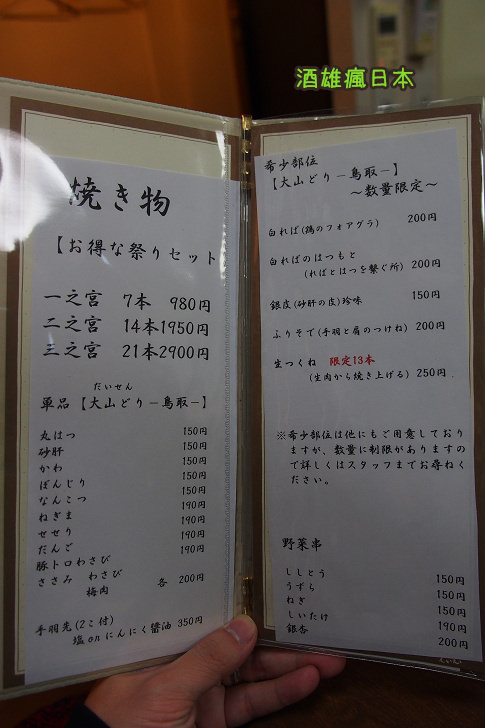 酒雄瘋日本
焼き物
【お得な祭りセット
一之宮 7本 980円
二之宮 14本1950円
三之宮 21本2900円
だいせん
単品【大山どりー鳥取ー】
丸はつ 150円
砂肝 150円
かわ 150円
ぼんじり 150円
なんこつ 150円
ねぎま 190円
せせり 190円
だんご 190円
豚トロわさび 190円
ささみ わさび
梅肉 各 200円
手羽先(2こ付) 350円
塩orにんにく醤油
希少部位
【大山どりー鳥取ー】
~数量限定~
白ればー(鶏のフォアグラ) 200円
白ればのはつもと
(ればとはつを繋ぐ所) 200円
銀皮(砂肝の皮)珍味 150円
ふりそで(手羽と肩のつけね) 200円
生つくね 限定13本
(生肉から焼き上げる) 250円
※希少部位は他にもご用意しており
ますが、数量に制限がありますの
で詳しくはスタッフまでお尋ねく
ださい。
野菜串
ししとう 150円
うずら 150円
ねぎ 150円
しいたけ 190円
銀杏 200円